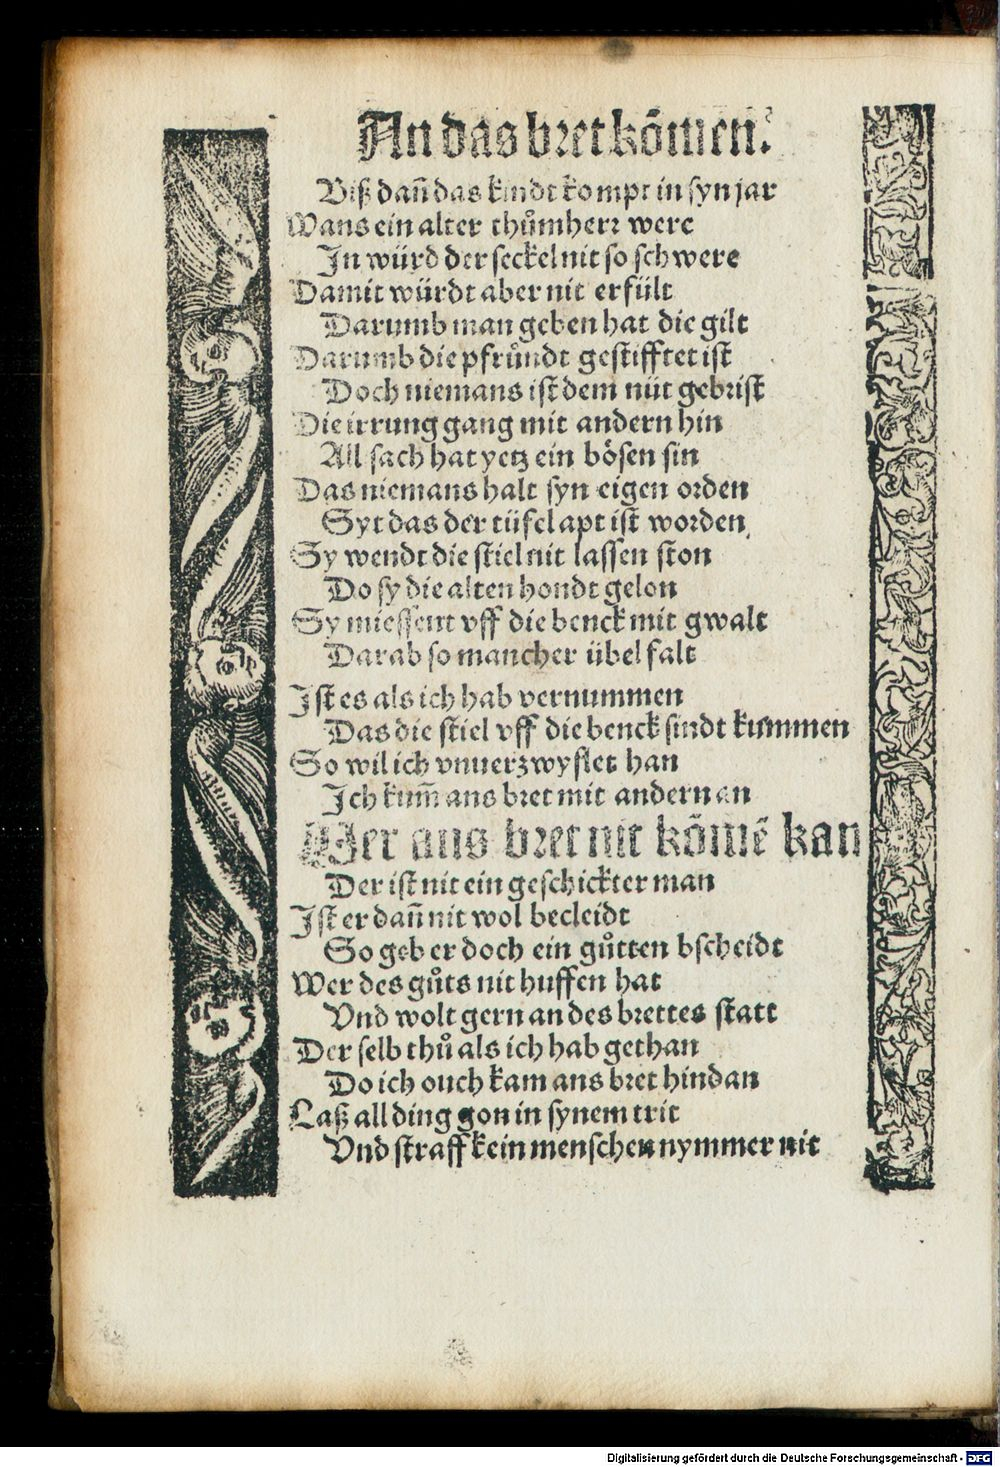 An das bret kõmen.
Biß dañ das kindt kompt in syn jar
Wans ein alter thůmherr were
In würd der seckel nit so schwere
Damit würdt aber nit erfült
Darumb man geben hat die gilt
Darumb die pfründt gestifftet ist
Doch niemans ist dem nüt gebrist
Die irrung gang mit andern hin
All sach hat yetz ein bösen sin
Das niemans halt syn eigen orden
Syt das der tüfel apt ist worden
Sy wendt die stiel nit lassen ston
Do sy die alten hondt gelon
Sy miessent vff die benck mit gwalt
Darab so mancher übel falt
Ist es als ich hab vernummen
Das die stiel vff die benck sindt kummen
So wil ich vnuerzwyflet han
Ich kum̃ ans bret mit andern an
Wer ans bret nit kõmẽ kan
Der ist nit ein geschickter man
Ist er dañ nit wol becleidt
So geb er doch ein gůtten bscheidt
Wer des gůts nit huffen hat
Vnd wolt gern an des brettes statt
Der selb thů als ich hab gethan
Do ich ouch kam ans bret hindan
Laß all ding gon in synem trit
Vnd straff kein menschen nymmer nit
Digitalisierung gefördert durch die Deutsche Forschungsgemeinschaft - DFG